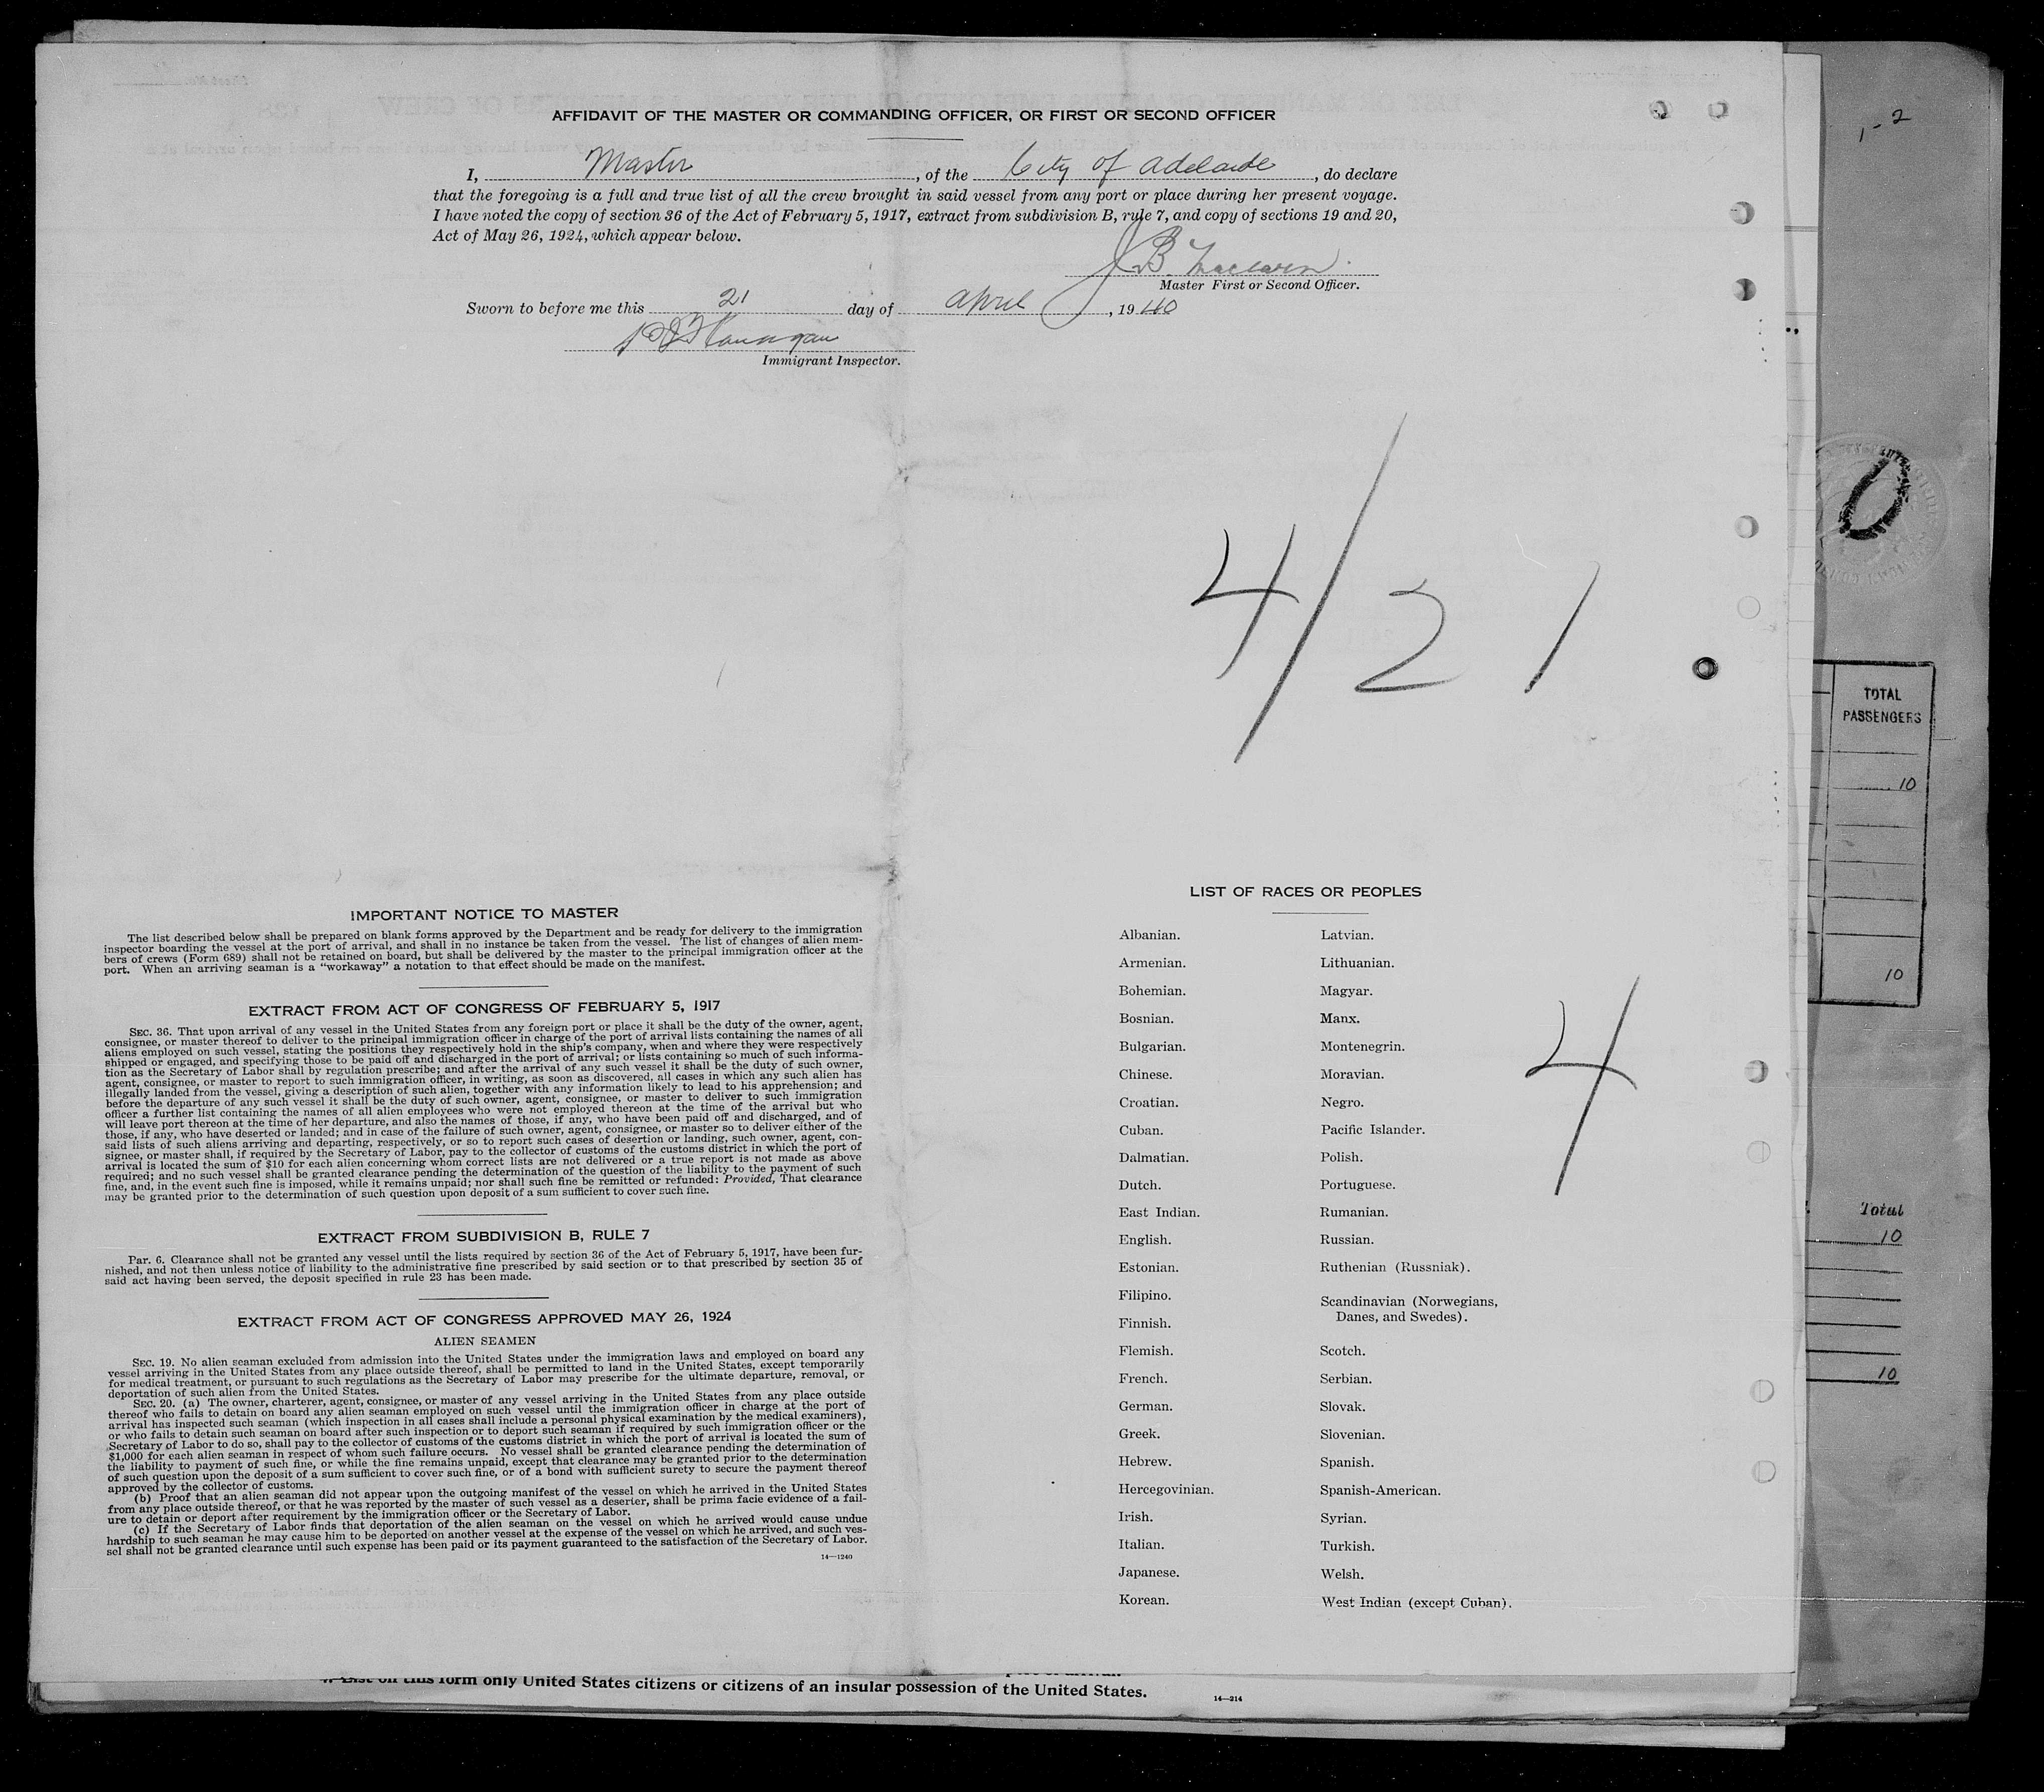 AFFIDAVIT OF THE MASTER OR COMMANDING OFFICER, OR FIRST OR SECOND OFFICER
I, Master, of the City of Adelaide, do declare
that the foregoing is a full and true list of all the crew brought in said vessel from any port or place during her present voyage.
I have noted the copy of section 36 of the Act of February 5, 1917, extract from subdivision B, rule 7, and copy of sections 19 and 20,
Act of May 26, 1924, which appear below.
J B
Master First or Second Officer.
Sworn to before me this 21 day of April, 1940
Flannagan
Immigrant Inspector.
4/21
IMPORTANT NOTICE TO MASTER
The list described below shall be prepared on blank forms approved by the Department and be ready for delivery to the immigration
inspector boarding the vessel at the port of arrival, and shall in no instance be taken from the vessel. The list of changes of alien mem-
bers of crews (Form 689) shall not be retained on board, but shall be delivered by the master to the principal immigration officer at the
port. When an arriving seaman is a "workaway" a notation to that effect should be made on the manifest.
EXTRACT FROM ACT OF CONGRESS OF FEBRUARY 5, 1917
SEC. 36. That upon arrival of any vessel in the United States from any foreign port or place it shall be the duty of the owner, agent,
consignee, or master thereof to deliver to the principal immigration officer in charge of the port of arrival lists containing the names of all
aliens employed on such vessel, stating the positions they respectively hold in the ship's company, when and where they were respectively
shipped or engaged, and specifying those to be paid off and discharged in the port of arrival; or lists containing so much of such informa-
tion as the Secretary of Labor shall by regulation prescribe; and after the arrival of any such vessel it shall be the duty of such owner,
agent, consignee, or master to report to such immigration officer, in writing, as soon as discovered, all cases in which any such alien has
illegally landed from the vessel, giving a description of such alien, together with any information likely to lead to his apprehension; and
before the departure of any such vessel it shall be the duty of such owner, agent, consignee, or master to deliver to such immigration
officer a further list containing the names of all alien employees who were not employed thereon at the time of the arrival but who
will leave port thereon at the time of her departure, and also the names of those, if any, who have been paid off and discharged, and of
those, if any, who have deserted or landed; and in case of the failure of such owner, agent, consignee, or master so to deliver either of the
said lists of such aliens arriving and departing, respectively, or so to report such cases of desertion or landing, such owner, agent, con-
signee, or master shall, if required by the Secretary of Labor, pay to the collector of customs of the customs district in which the port of
arrival is located the sum of $10 for each alien concerning whom correct lists are not delivered or a true report is not made as above
required; and no such vessel shall be granted clearance pending the determination of the question of the liability to the payment of such
fine, and, in the event such fine is imposed, while it remains unpaid; nor shall such fine be remitted or refunded: Provided, That clearance
may be granted prior to the determination of such question upon deposit of a sum sufficient to cover such fine.
EXTRACT FROM SUBDIVISION B, RULE 7
Par. 6. Clearance shall not be granted any vessel until the lists required by section 36 of the Act of February 5, 1917, have been fur-
nished, and not then unless notice of liability to the administrative fine prescribed by said section or to that prescribed by section 35 of
said act having been served, the deposit specified in rule 23 has been made.
EXTRACT FROM ACT OF CONGRESS APPROVED MAY 26, 1924
ALIEN SEAMEN
SEC. 19. No alien seaman excluded from admission into the United States under the immigration laws and employed on board any
vessel arriving in the United States from any place outside thereof, shall be permitted to land in the United States, except temporarily
for medical treatment, or pursuant to such regulations as the Secretary of Labor may prescribe for the ultimate departure, removal, or
deportation of such alien from the United States.
SEC. 20. (a) The owner, charterer, agent, consignee, or master of any vessel arriving in the United States from any place outside
thereof who fails to detain on board any alien seaman employed on such vessel until the immigration officer in charge at the port of
arrival has inspected such seaman (which inspection in all cases shall include a personal physical examination by the medical examiners),
or who fails to detain such seaman on board after such inspection or to deport such seaman if required by such immigration officer or the
Secretary of Labor to do so, shall pay to the collector of customs of the customs district in which the port of arrival is located the sum of
$1,000 for each alien seaman in respect of whom such failure occurs. No vessel shall be granted clearance pending the determination of
the liability to payment of such fine, or while the fine remains unpaid, except that clearance may be granted prior to the determination
of such question upon the deposit of a sum sufficient to cover such fine, or of a bond with sufficient surety to secure the payment thereof
approved by the collector of customs.
(b) Proof that an alien seaman did not appear upon the outgoing manifest of the vessel on which he arrived in the United States
from any place outside thereof, or that he was reported by the master of such vessel as a deserter, shall be prima facie evidence of a fail-
ure to detain or deport after requirement by the immigration officer or the Secretary of Labor.
(c) If the Secretary of Labor finds that deportation of the alien seaman on the vessel on which he arrived would cause undue
hardship to such seaman he may cause him to be deported on another vessel at the expense of the vessel on which he arrived, and such ves-
sel shall not be granted clearance until such expense has been paid or its payment guaranteed to the satisfaction of the Secretary of Labor.
14—1240
LIST OF RACES OR PEOPLES
Albanian.
Armenian.
Bohemian.
Bosnian.
Bulgarian.
Chinese.
Croatian.
Cuban.
Dalmatian.
Dutch.
East Indian.
English.
Estonian.
Filipino.
Finnish.
Flemish.
French.
German.
Greek.
Hebrew.
Hercegovinian.
Irish.
Italian.
Japanese.
Korean.
Latvian.
Lithuanian.
Magyar.
Manx.
Montenegrin.
Moravian.
Negro.
Pacific Islander.
Polish.
Portuguese.
Rumanian.
Russian.
Ruthenian (Russniak).
Scandinavian (Norwegians,
Danes, and Swedes).
Scotch.
Serbian.
Slovak.
Slovenian.
Spanish.
Spanish-American.
Syrian.
Turkish.
Welsh.
West Indian (except Cuban).
4
form only United States citizens or citizens of an insular possession of the United States.
14—214
1-2
0
TOTAL
PASSENGERS
10
10
Total
10
10